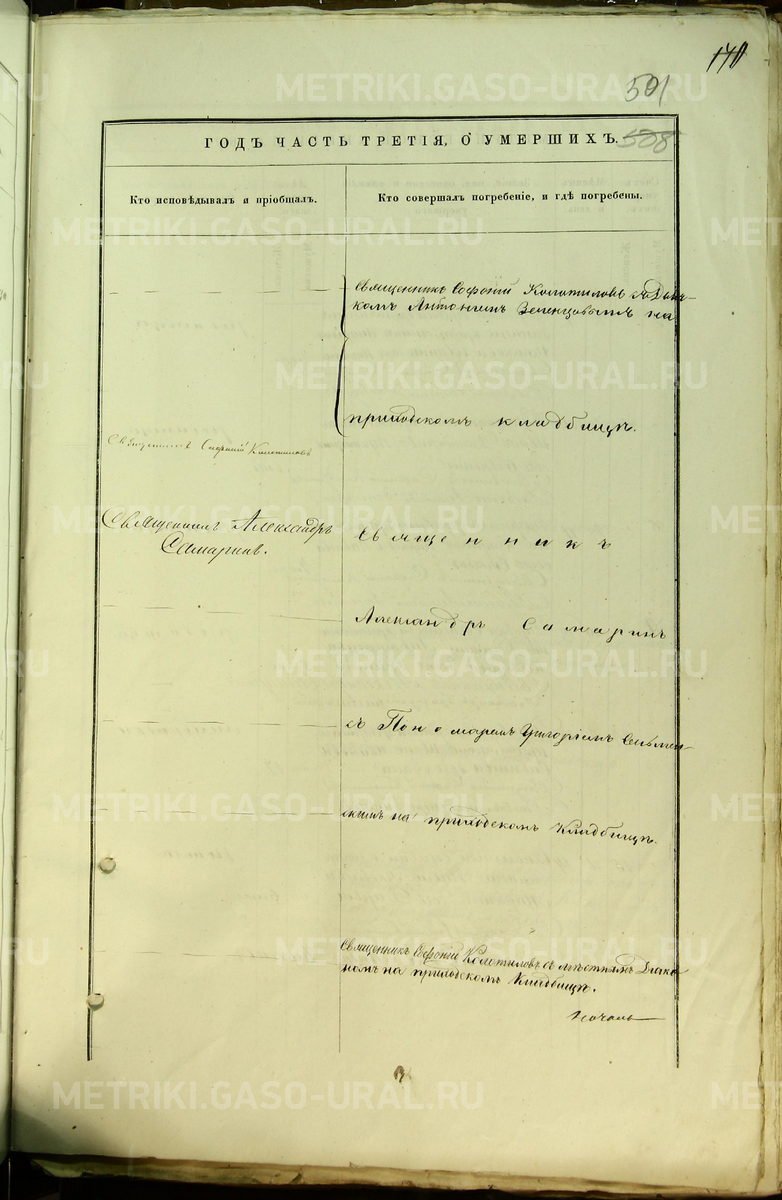 140
501
ГОДЪ ЧАСТЬ ТРЕТІЯ, О УМЕРШИХЪ. 508
Кто исповѣдывалъ и пріобщалъ.
Кто совершалъ погребеніе, и гдѣ погребены.
Священникъ Софоній Колотиловъ
на
приходскомъ кладбищѣ.
Священникъ Софоній Колотиловъ
Священникъ Александръ
Самаринъ.
Священникъ
Александръ Самаринъ
съ Пономаремъ Григоріемъ
на приходскомъ Кладбищѣ.
Священникъ Софоній Колотиловъ съ мѣстнымъ Диако-
номъ на приходскомъ Кладбищѣ.
METRIKI.GASO-URAL.RU